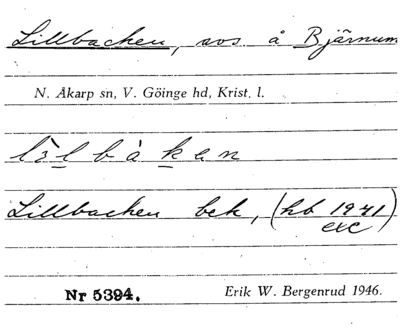 Lillbacken, avs å Bjärnum
N. Åkarp sn, V. Göinge hd, Krist. l.
lilbàkan
Lillbacken bek, (hb 1941)
exc
Nr 5394. Erik W. Bergenrud 1946.